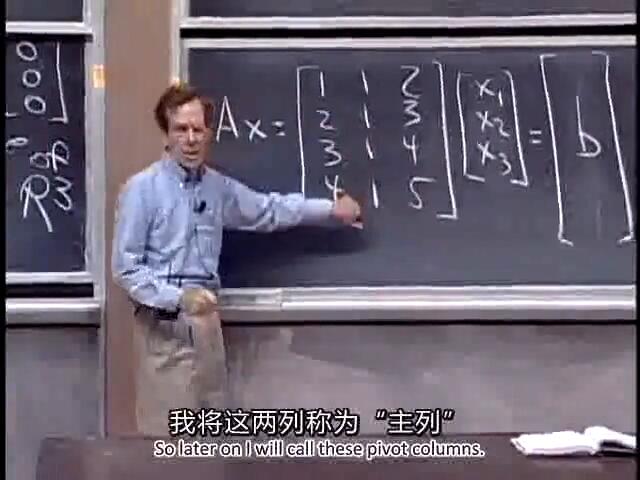 0
0
0
of
R3
Ax = [1 1 2] [x1] = [b]
2 1 3 x2
3 1 4 x3
4 1 5
我将这两列称为“主列”
So later on I will call these pivot columns.